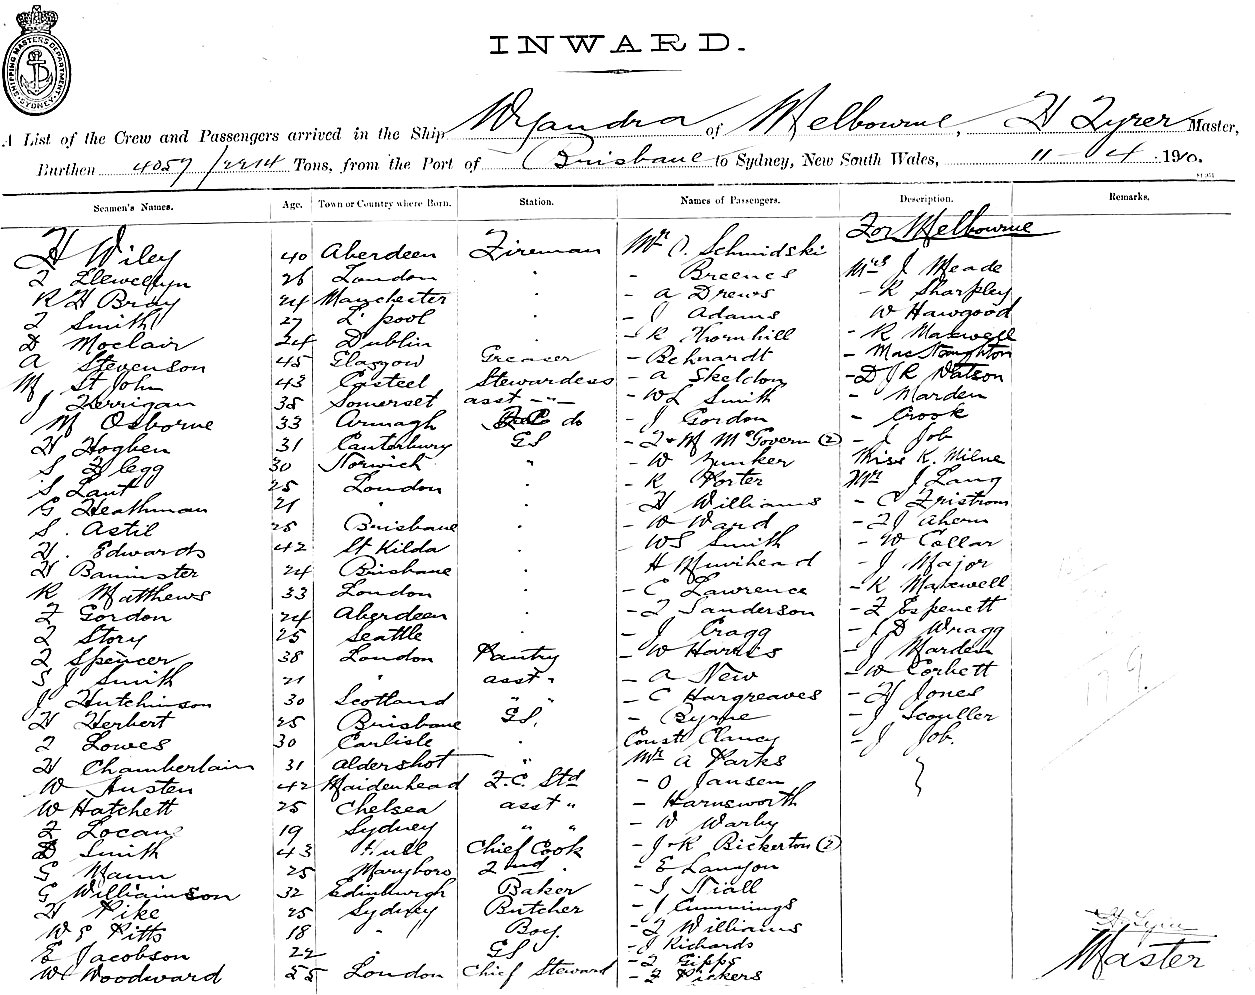 SHIPPING MASTER'S DEPARTMENT SYDNEY
INWARD.
A List of the Crew and Passengers arrived in the Ship Wyandra of Melbourne, H Tyrer Master,
Burthen 4057/2214 Tons, from the Port of Brisbane to Sydney, New South Wales, 11-4 1910.
Seamen's Names. Age. Town or Country where Born. Station. Names of Passengers. Description. Remarks.
For Melbourne
H Wiley 40 Aberdeen Fireman Mr O. Schmidski
F Llewellyn 26 London " - Breenes Mrs J Meade
R H Bray 24 Manchester " - A Drews - R Sharpley
F Smith 27 L'pool " - J Adams W Hawgood
D Moclair 24 Dublin " - R Thornhill - R Maxwell
A Stevenson 45 Glasgow Greaser - Behnardt - MacNaughton
M St John 43 Casteel Stewardess - A Skeldon - D J R Watson
J Kerrigan 38 Somerset asst -"- - W L Smith - Marden
M Osborne 33 Armagh do - J Gordon - Crook
H Hogben 31 Canterbury GS - F & M McGovern (2) - J Job
S Flegg 30 Norwich " - W Junker Miss K. Milne
S Lant 25 London " - R Porter Mr J Lang
G Heathman 21 " " - H Williams - C Fristrom
S. Astil 25 Brisbane " - W Ward - F J Ahern
H. Edwards 42 St Kilda " - W S Smith - W Collar
H Bannister 24 Brisbane " H Muirhead - J Major
R Matthews 33 London " - C Lawrence - R Maxwell
F Gordon 24 Aberdeen " - F Sanderson - F Espenett
F Story 25 Seattle " - J Cragg - J D Wragg
F Spencer 38 London Pantry - W Harris - J Marden
S J Smith 21 " asst " - A New - W Corbett
J Hutchinson 30 Scotland " " - C Hargreaves - H Jones
H Herbert 25 Brisbane GS. - Byrne - J Scouller
F Lowes 30 Carlisle " Const Clancy - J Job.
H Chamberlain 31 Aldershot " Mr A Parks
W Austen 42 Maidenhead F.C. Std - O Jansen
W Hatchett 25 Chelsea asst " - Harnsworth
F Locan 19 Sydney " " - W Warby
D Smith 43 Hull Chief Cook - J & K Bickerton (2)
G Mann 25 Maryboro 2nd " - E Lanyon
G Williamson 32 Edinburgh Baker - J Niall
H Pike 25 Sydney Butcher - J Cummings
W E Pitts 18 " Boy. - F Williams
E Jacobson 22 " GS - J Richards
- F Gipps
W C Woodward 55 London Chief Steward - F Vickers
179.
H Tyrer
Master